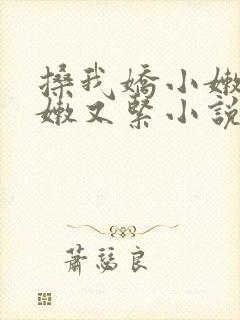 搡我嬌小嫩
嫩又緊小說
蕭瑟良